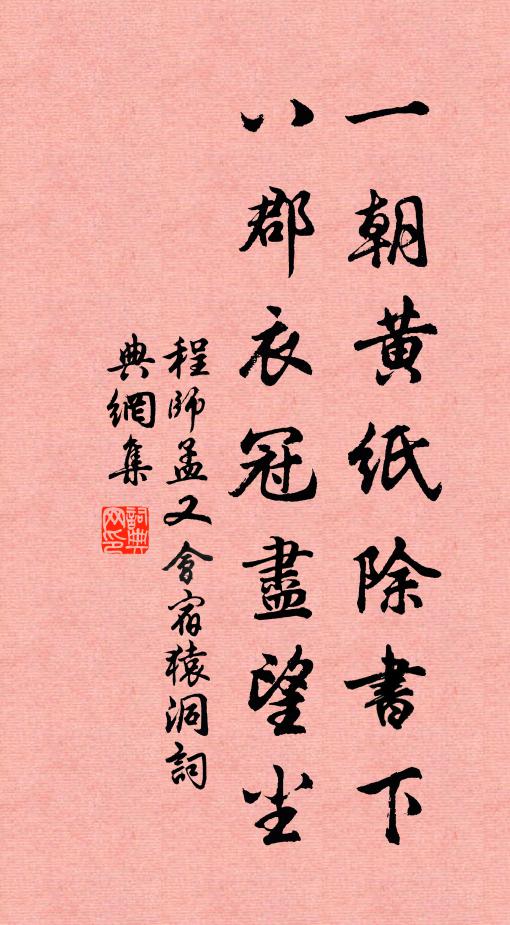 一朝黄紙除書下
八郡衣冠盡望尘
程師孟又會宿猿洞詞
典網集
詞典网印